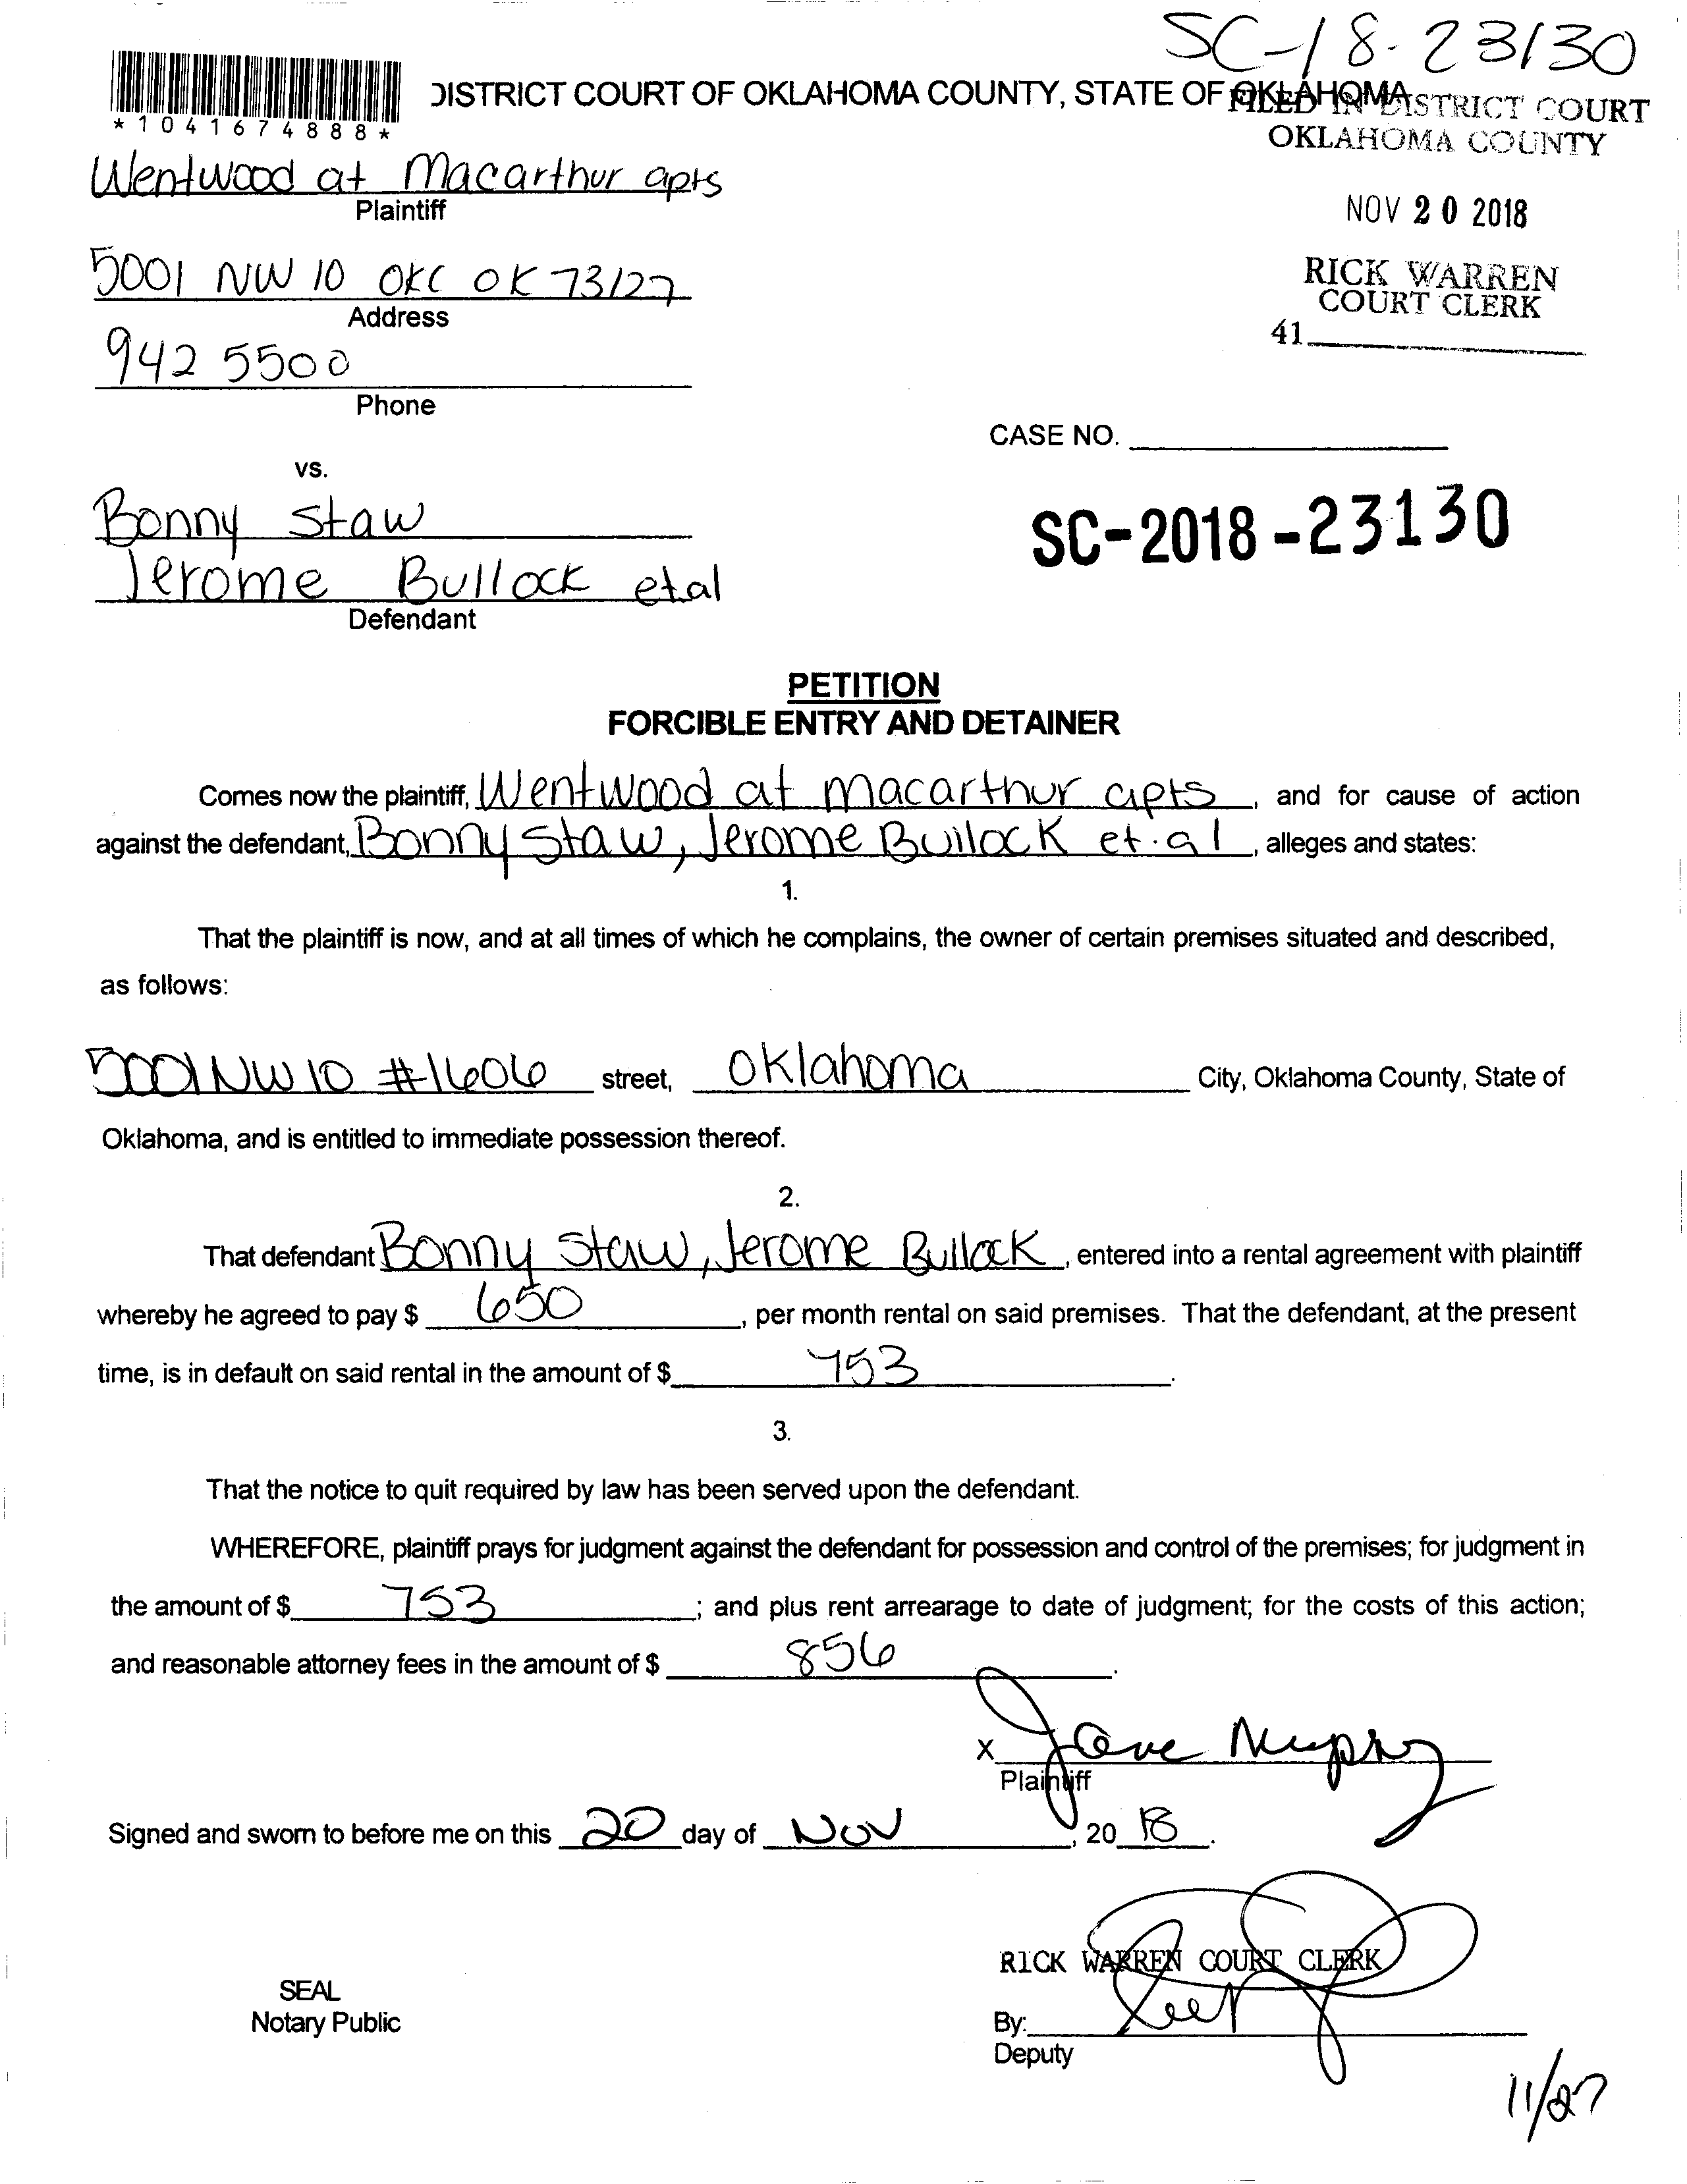 SC-18-23130
DISTRICT COURT OF OKLAHOMA COUNTY, STATE OF OKLAHOMA
FILED IN DISTRICT COURT
OKLAHOMA COUNTY
*1041674888*
Wentwood at Macarthur apts
Plaintiff
NOV 20 2018
5001 NW 10 OKC OK 73127
Address
RICK WARREN
COURT CLERK
41
942 5500
Phone
CASE NO.
vs.
Bonny Staw
SC-2018-23130
Jerome Bullock etal
Defendant
PETITION
FORCIBLE ENTRY AND DETAINER
Comes now the plaintiff, Wentwood at macarthur apts, and for cause of action
against the defendant, Bonny Staw, Jerome Bullock et.al, alleges and states:
1.
That the plaintiff is now, and at all times of which he complains, the owner of certain premises situated and described,
as follows:
5001 NW 10 #1606 street, Oklahoma City, Oklahoma County, State of
Oklahoma, and is entitled to immediate possession thereof.
2.
That defendant Bonny Staw, Jerome Bullock, entered into a rental agreement with plaintiff
whereby he agreed to pay $ 650, per month rental on said premises. That the defendant, at the present
time, is in default on said rental in the amount of $ 753.
3.
That the notice to quit required by law has been served upon the defendant.
WHEREFORE, plaintiff prays for judgment against the defendant for possession and control of the premises; for judgment in
the amount of $ 753; and plus rent arrearage to date of judgment; for the costs of this action;
and reasonable attorney fees in the amount of $ 856.
X
Plaintiff
Signed and sworn to before me on this 20 day of Nov, 20 18.
RICK WARREN COURT CLERK
SEAL
Notary Public
By:
Deputy
11/27